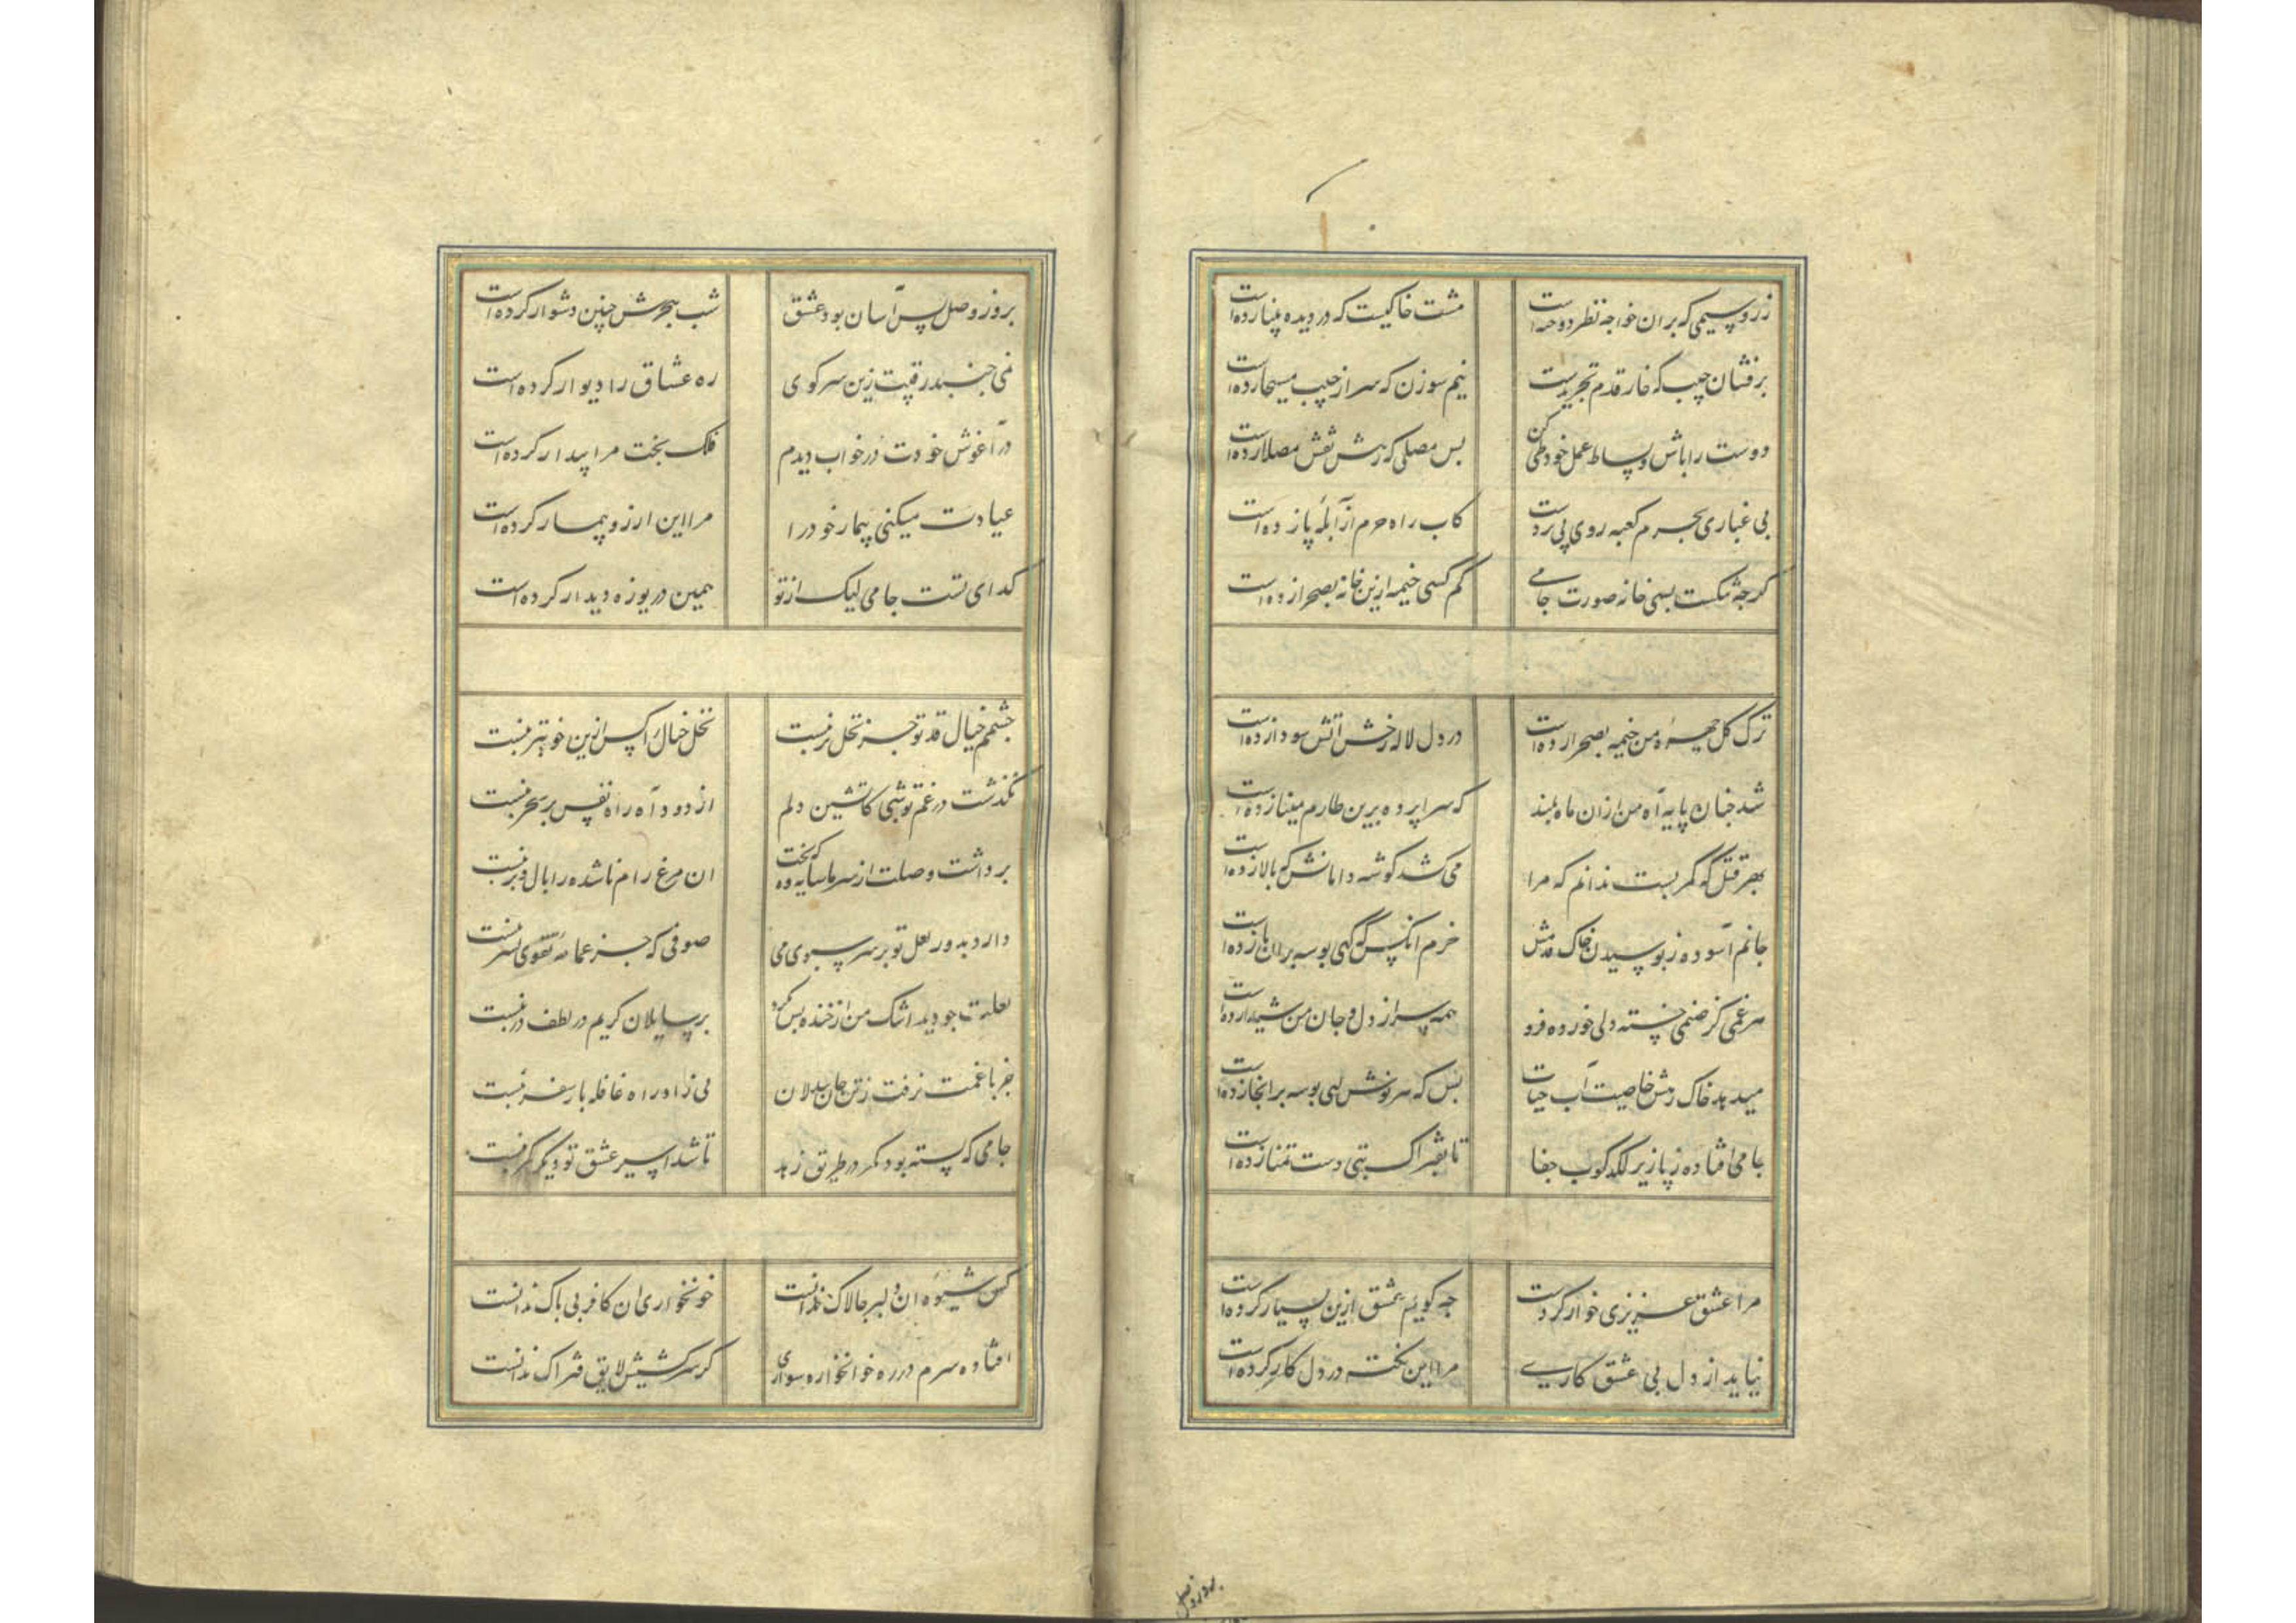 زر و سیمی که بران خواجه نظر دوخته است مشت خاکیست که در دیده بینا زده است
برفشان جیب که خار قدم تجریدست نیم سوزن که سر از جیب مسیحا زده است
دوست را باش و بساط عمل خود طی کن بس مصلی که رهش نقش مصلا زده است
بی غباری بحرم کعبه روی پی بردست کاب راه حرم از آبله پا زده است
کرچه شکست بسی خانه صورت جامی کم کسی خیمه ازین خانه بصحرا زده است
ترک کل چهره من خیمه بصحرا زده است در دل لاله رخش آتش سودا زده است
شد چنان پایه آه من ازان ماه بلند که سراپرده برین طارم مینا زده است
بهر قتل که کمر بست ندانم که مرا می کشد کوشه دامانش که بالا زده است
جانم آسوده ز بوسیدن خاک قدمش خرم انکس که کهی بوسه بران پا زده است
هر غمی کز صنمی خسته دلی خورده فرو همه سر از دل و جان من شیدا زده است
میدهد خاک رهش خاصیت آب حیات بس که هر نوش لبی بوسه برانجا زده است
جامی افتاده ز پا زیر لکدکوب جفا تا بفتراک بتی دست تمنا زده است
مرا عشق عزیزی خوار کردست چه کویم عشق ازین بسیار کرده است
نیاید از دل بی عشق کاری مرا این نکته در دل کار کرده است
بروز وصل
بروز وصل بس آسان بود عشق شب هجرش چنین دشوار کرده است
نمی جنبد رقیبت زین سر کوی ره عشاق را دیوار کرده است
در آغوش خودت در خواب دیدم فلک بخت مرا بیدار کرده است
عیادت میکنی بیمار خود را مرا این ارزو بیمار کرده است
کدای تست جامی لیک از تو همین دریوزه دیدار کرده است
چشمم خیال قد تو جز نخل تر نبست نخل خیال را کس ازین خوبتر نبست
نکذشت در غم تو شبی کاتشین دلم از دود آه راه نفس بر سحر نبست
برداشت وصلت از سر ما سایه وه که بخت ان مرغ رام ناشده را بال و پر نبست
دارد بدور لعل تو بر سر سبوی می صوفی که جز عمامه تقوی بسر نبست
لعلت چو دید اشک من از خنده بس نکرد بر سایلان کریم در لطف در نبست
جز با غمت نرفت ز تن جان بیدلان بی زاد راه قافله بار سفر نبست
جامی که بسته بود کمر در طریق زهد تا شد اسیر عشق تو دیکر کمر نبست
کس شیوه ان دلبر چالاک ندانست خونخواری ان کافر بی باک ندانست
افتاده سرم در ره خونخواره سواری کز سرکشیش لایق فتراک ندانست